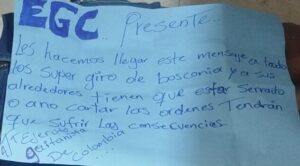 EGC.. Presente...
Les hacemos llegar este mensaje a todo
los super giro de bosconia y a sus
alrededores tienen que estar Serrado
o ano cantar las ordenes Tendrán
que sufrir las consecuencias.
ATT Ejercito
gaitanista
De Colombia...